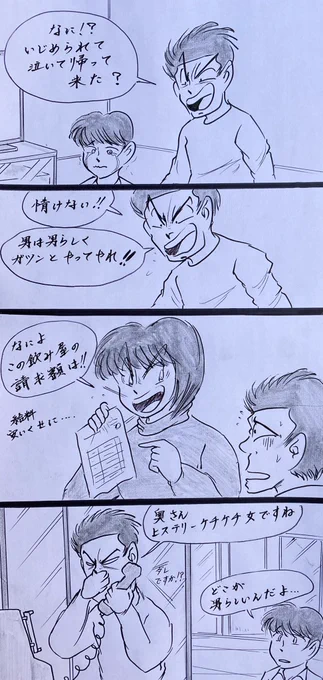 なに!?
いじめられて
泣いて帰って
来た?
情けない!!
男は男らしく
ガツンとやってやれ!!
なによ
この飲み屋の
請求額は!!
給料
安いくせに....
奥さん
ヒステリーケチケチ女ですね
ですか!?
どこが
男らしいんだよ...